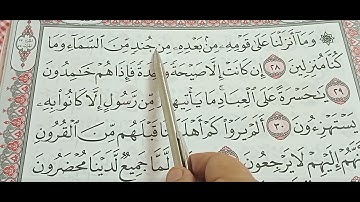 وَمَا أَنزَلْنَا عَلَىٰ قَوْمِهِۦ مِنۢ بَعْدِهِۦ مِن جُندٍ مِّنَ ٱلسَّمَآءِ وَمَا
كُنَّا مُنزِلِينَ ٢٨ إِن كَانَتْ إِلَّا صَيْحَةً وَٰحِدَةً فَإِذَا هُمْ خَٰمِدُونَ
٢٩ يَٰحَسْرَةً عَلَى ٱلْعِبَادِ مَا يَأْتِيهِم مِّن رَّسُولٍ إِلَّا كَانُوا۟ بِهِۦ
يَسْتَهْزِءُونَ ٣٠ أَلَمْ يَرَوْا۟ كَمْ أَهْلَكْنَا قَبْلَهُم مِّنَ ٱلْقُرُونِ
أَنَّهُمْ إِلَيْهِمْ لَا يَرْجِعُونَ لَّمَّا جَمِيعٌ لَّدَيْنَا مُحْضَرُونَ